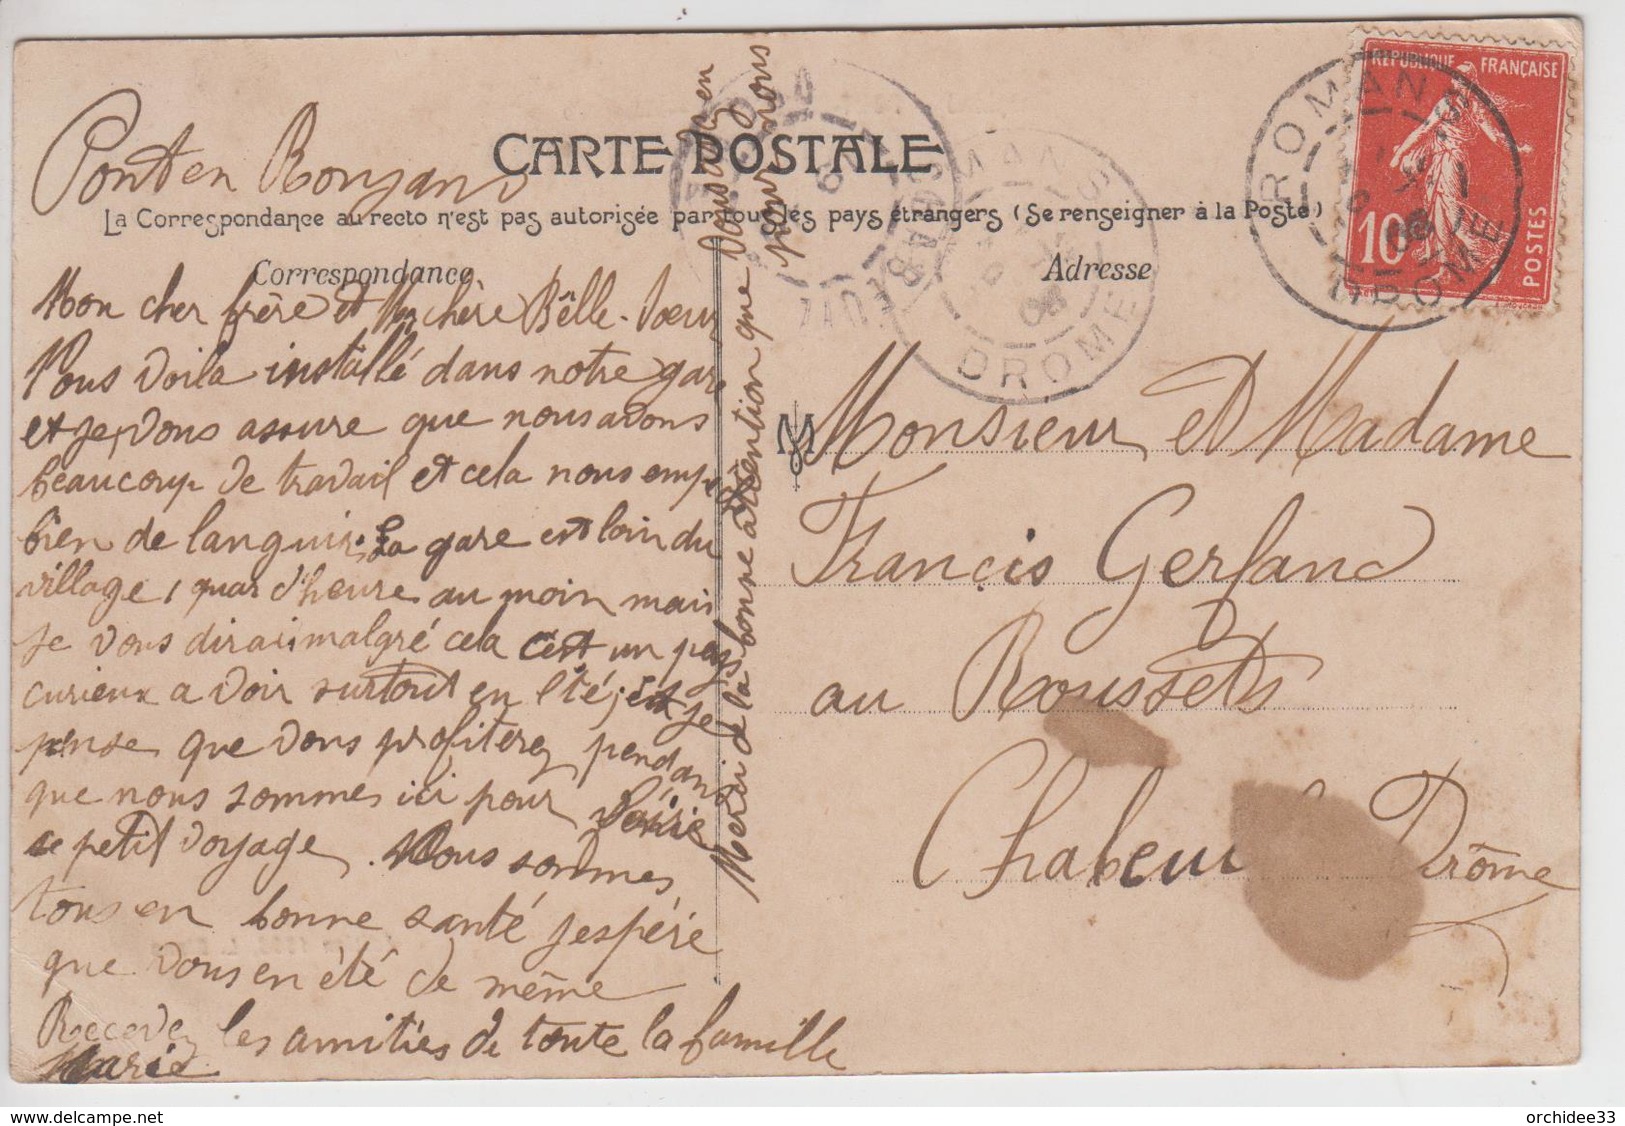 CARTE POSTALE
La Correspondance au recto n'est pas autorisée par tous les pays étrangers (Se renseigner à la Poste)
Correspondance
Adresse
Pont en Royans
Mon cher frère et Ma chère Bêlle-Soeur
Vous voila installé dans notre gare
et je vous assure que nous avons
beaucoup de travail et cela nous emp
bien de languir. La gare est loin du
village 1 quar d'heure au moin mais
je vous dirai malgré cela c'est un pays
curieux a voir surtout en été; et je
pense que vous profiterez pendant
que nous sommes ici pour faire
ce petit voyage. Nous sommes
tous en bonne santé j'espére
que vous en été de même
Recevez les amitiés de toute la famille
Marie
Merci de la bonne attention que vous avez en
pour nous
M
Monsieur et Madame
Francis Gerland
au Roussets
Chabeuil Drôme
REPUBLIQUE FRANÇAISE
10
POSTES
ROMANS
DROME
ROMANS
DROME
08
orchidee33